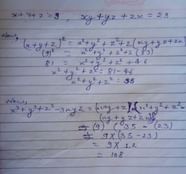 x+y+z=9, xy+yz+zx=23
Now,
(x+y+z)² = x²+y²+z²+2(xy+yz+zx)
(9)² = x²+y²+z²+2(23)
81 = x²+y²+z²+46
x²+y²+z² = 81-46
x²+y²+z² = 35
Now,
x³+y³+z³-3xyz = (x+y+z)(x²+y²+z²-
xy+yz+zx)
= (9) (35-23)
= 9×12
= 108